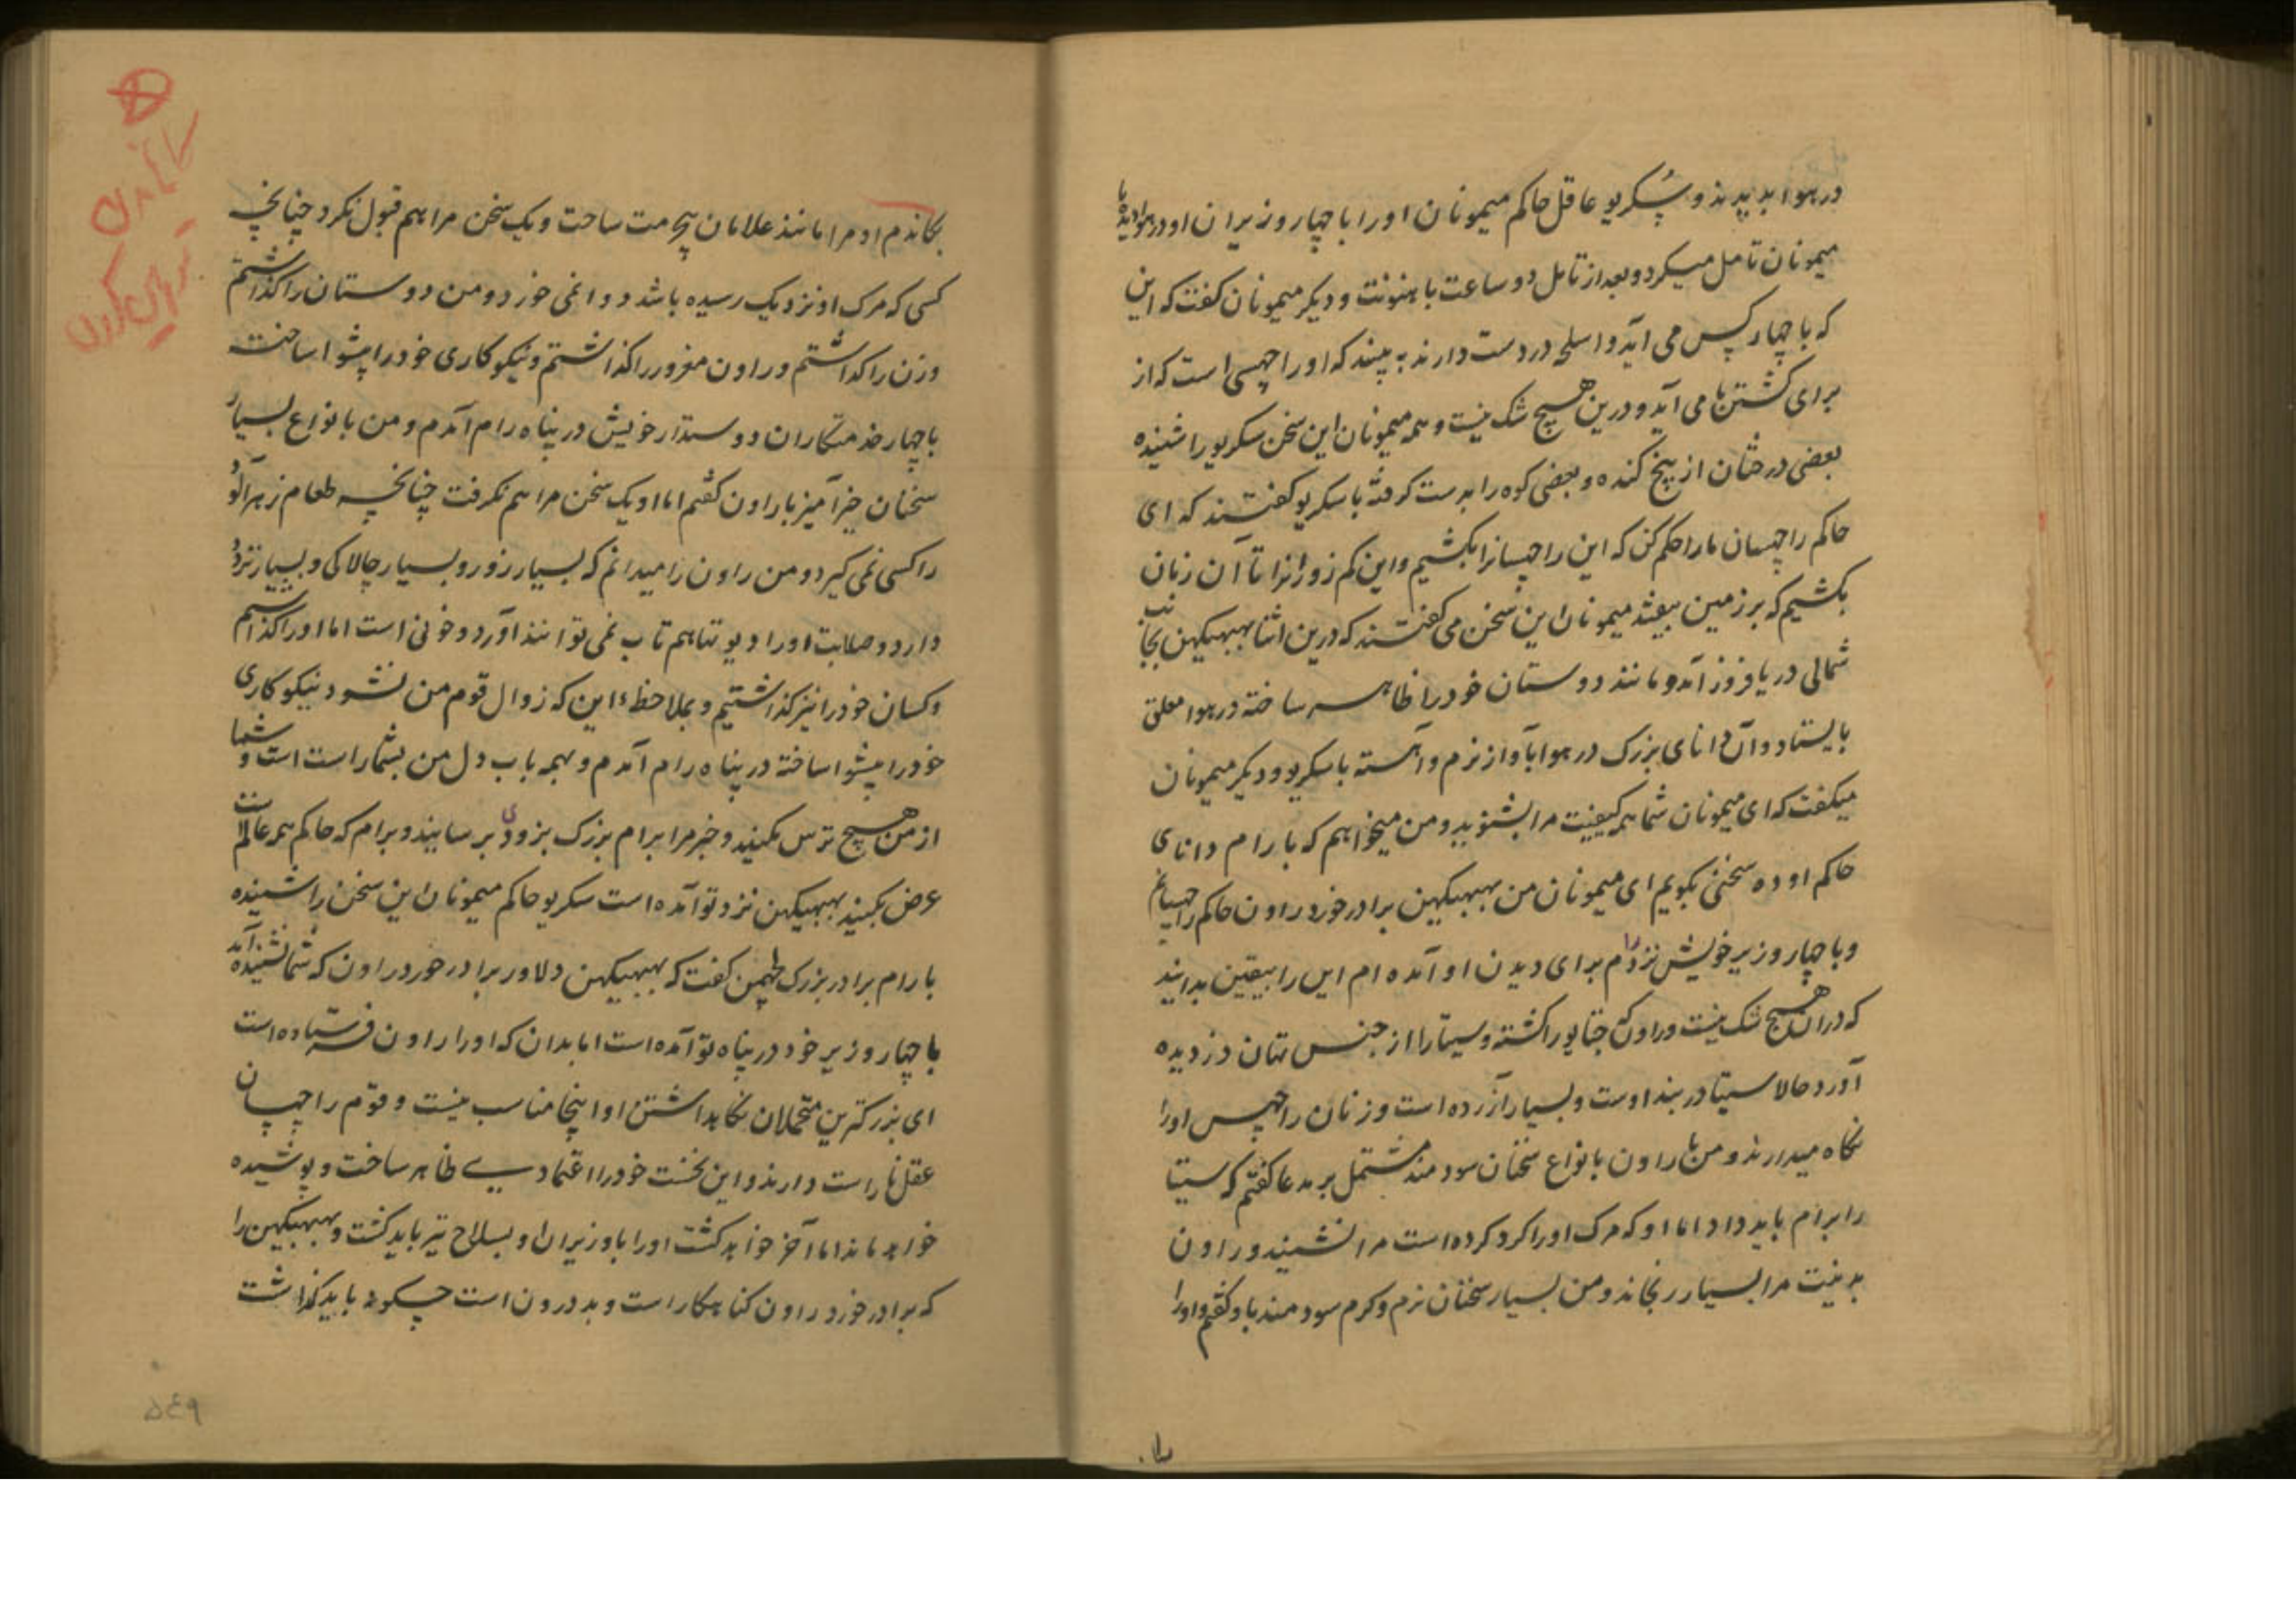 در هوا بدیدند و پسکریو عاقل حاکم میمونان اورا با چهار وزیران او در هوا دیده با
میمونان تامل میکرد و بعد از تامل دو ساعت با هنونت و دیکر میمونان کفت که این
که با چهار کس می آید و اسلحه در دست دارند به بینید که او راچهسی است که از
برای کشتن ما می آید و درین هیچ شک نیست و همه میمونان این سخن سکریو را شنیده
بعضی درختان از بیخ کنده و بعضی کوه را بدست کرفته با سکریو کفتند که ای
حاکم راچهسان ما را حکم کن که این راچهسانرا بکشیم و این کم زورانرا تا آن زمان
بکشیم که بر زمین بیفتد میمونان این سخن می کفتند که درین اثنا بهبهیکهن بجانب
شمالی دریا فروز آمد و مانند دوستان خود را ظاهر ساخته در هوا معلق
بایستاد و آن دانای بزرک در هوا بآواز نرم و آهسته با سکریو و دیکر میمونان
میکفت که ای میمونان شما همه کیفیت مرا بشنوید و من میخواهم که با رام دانای
حاکم اوده سخنی بکویم ای میمونان من بهبهیکهن برادر خورد راون حاکم راچهسانم
و با چهار وزیر خویش نزد رام برای دیدن او آمده ام این را بیقین بدانید
که در ان هیچ شک نیست و راون که جتایو را کشته و سیتا را از جنس تهان دزدیده
آورد و حالا سیتا در بند اوست و بسیار آزرده است و زنان راچهس اورا
نکاه میدارند و من با راون بانواع سخنان سودمند مشتمل بر مدعا کفتم که سیتا
را برام باید داد اما او که مرک اورا کرد کرده است مرا نشنید و راون
بد نیت مرا بسیار رنجاند و من بسیار سخنان نرم و کرم سودمند باو کفتم و اورا
بجاندم او مرا مانند غلامان بیحرمت ساخت و یک سخن مرا هم قبول نکرد چنانچه
کسی که مرک او نزدیک رسیده باشد دوا نمی خورد و من دوستان را کذاشتم
و زن را کذاشتم و راون مغرور را کذاشتم و نیکو کاری خود را پیشوا ساخته
با چهار خدمتکاران دوستدار خویش در پناه رام آمدم و من بانواع بسیار
سخنان خیرآمیز با راون کفتم اما او یک سخن مرا هم نکرفت چنانچه طعام زهرآلود
را کسی نمی کیرد و من راون را میدانم که بسیار زور و بسیار چالاکی و بسیار تردد
دارد و صلابت اورا دیوتها هم تاب نمی توانند آورد و خونی است اما اورا کذاشتم
و کسان خود را نیز کذاشتیم و بملاحظهٔ این که زوال قوم من نشود نیکو کاری
خود را پیشوا ساخته در پناه رام آمدم و بهمه باب دل من بشما راست است و شما
از من هیچ ترس مکنید و خبر مرا برام بزرک بزودی برسانید و برام که حاکم همه عالم است
عرض بکنید بهبهیکهن نزد تو آمده است سکریو حاکم میمونان این سخن را شنیده
با رام برادر بزرک لچهمن کفت که بهبهیکهن دلاور برادر خورد راون که شما شنیده اند
با چهار وزیر خود در پناه تو آمده است اما بدان که اورا راون فرستاده است
ای بزرکترین متحملان نکاهداشتن او اینجا مناسب نیست و قوم راچهسان
عقل نا راست دارند و این نخست خود را اعتمادی ظاهر ساخت و پوشیده
خواهد ماند اما آخر خواهد کشت اورا با وزیران او بسلاح تیز باید کشت و بهبهیکهن را
که برادر خورد راون کناهکار است و بد درون است چکونه باید کذاشت
۵۴۹